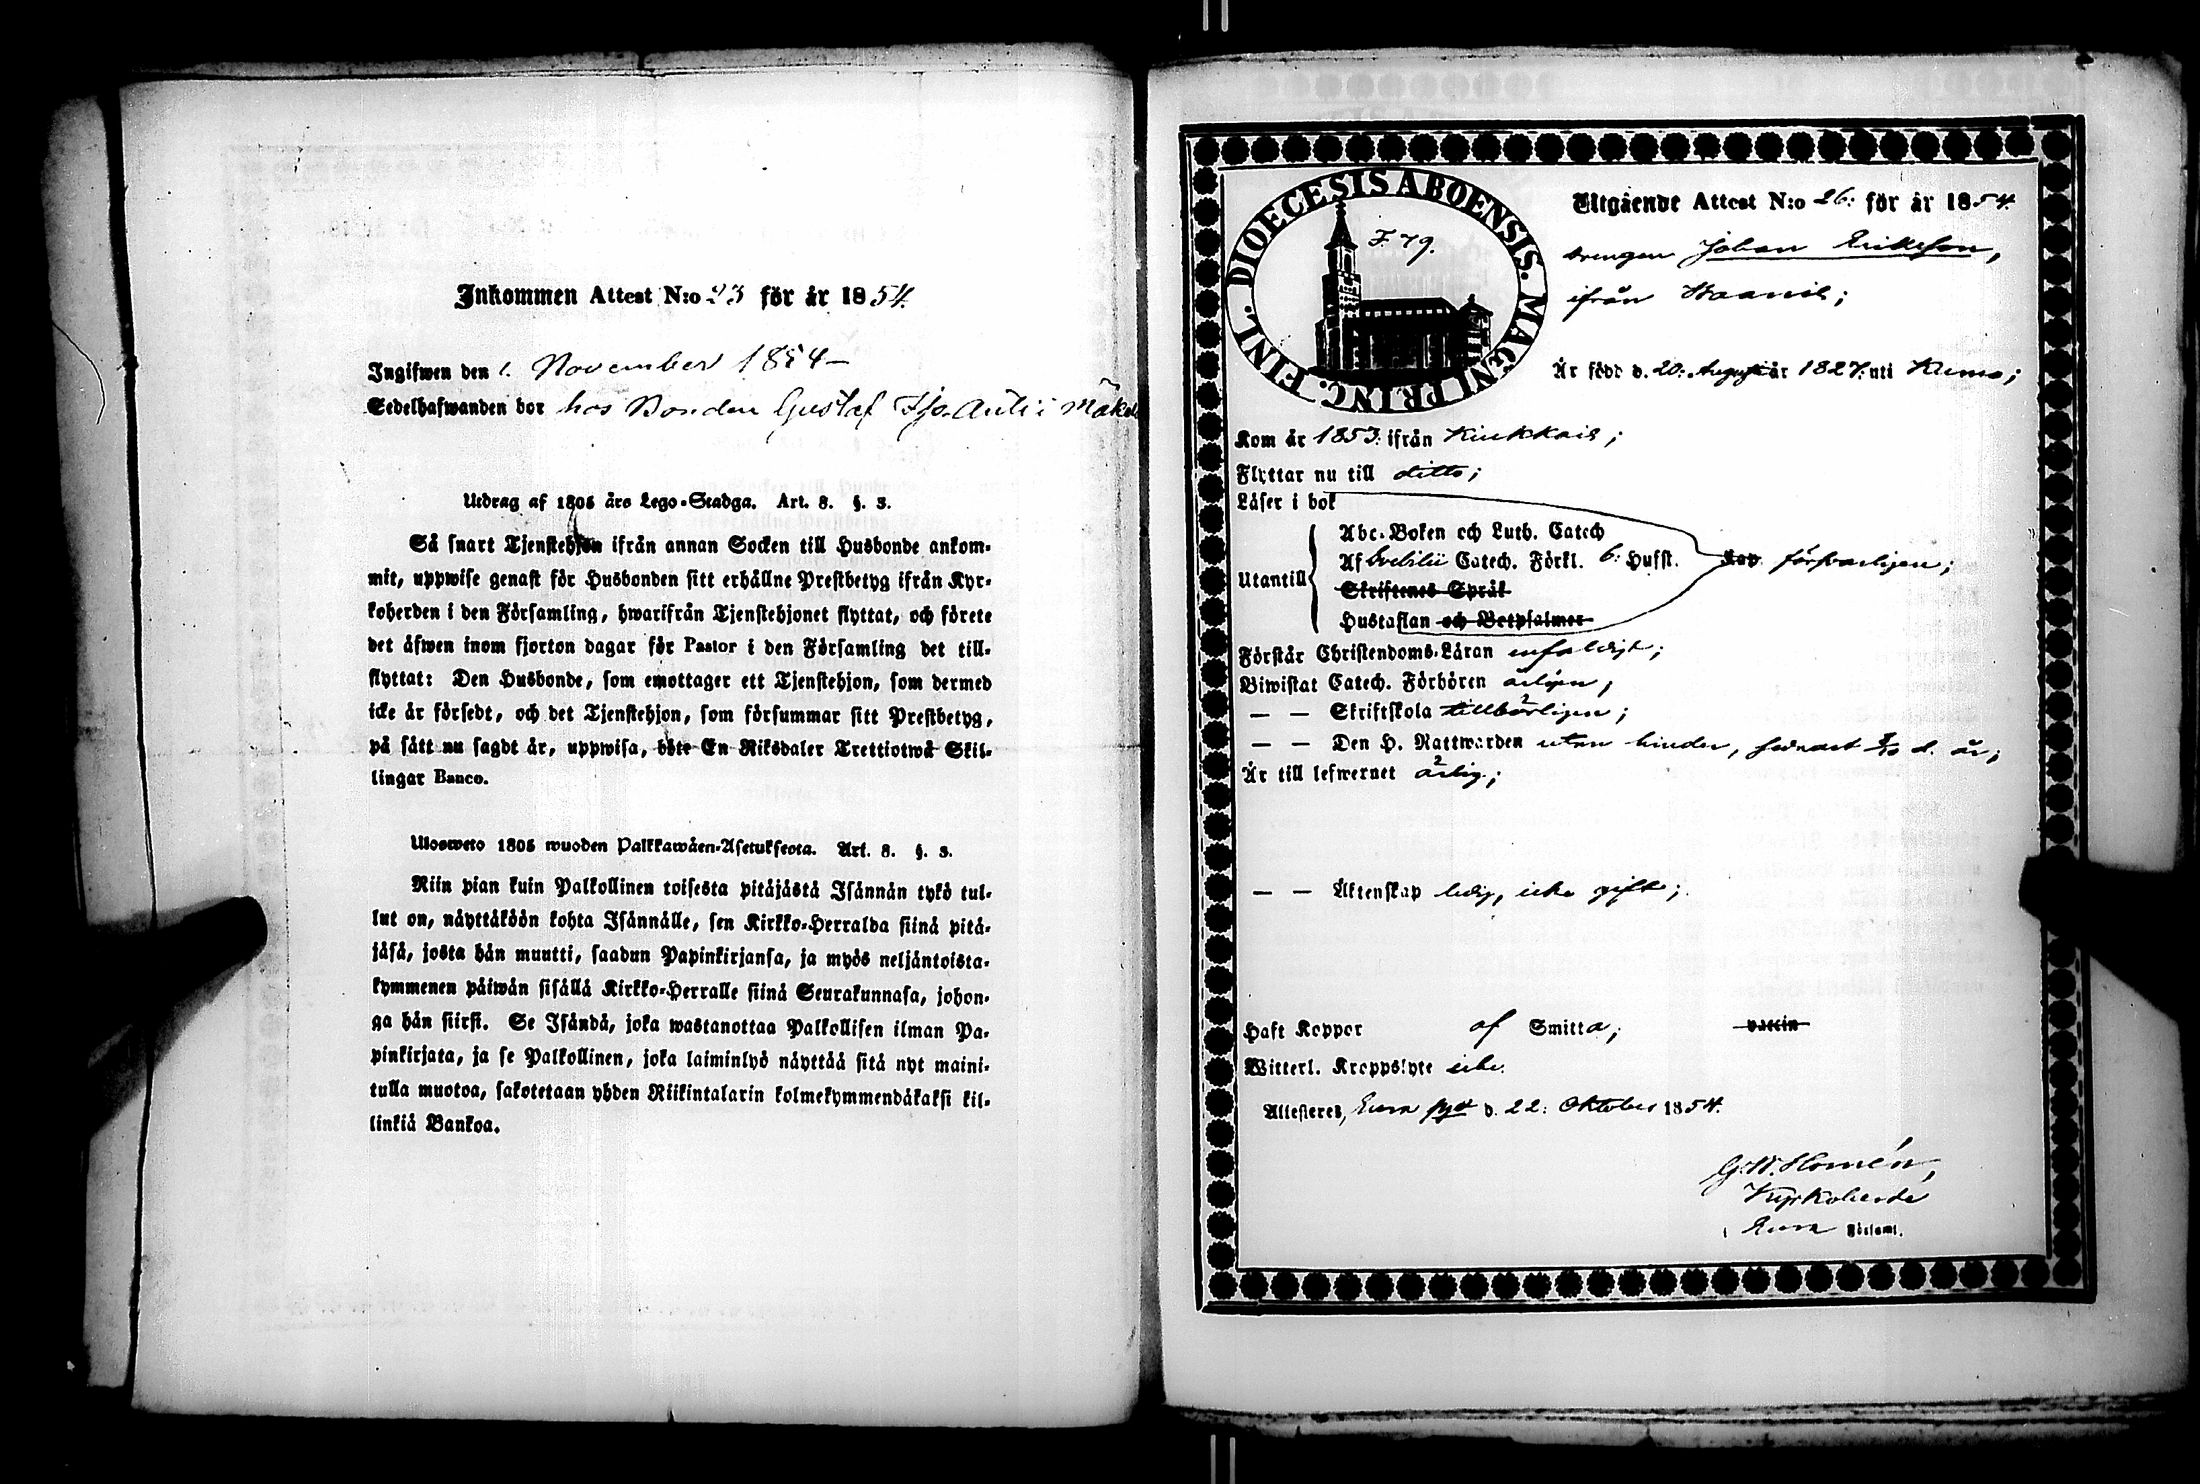 Inkommen Attest N:o 23 för år 1854.
Ingifwen den 1. November 1854 –
Sedelhafwanden bor hos Bonden Gustaf
Utdrag af 1805 års Lego-Stadga. Art. 8. §. 3.
Så snart Tjenstehjon ifrån annan Socken till Husbonde ankom-
mit, uppwise genast för Husbonden sitt erhållne Prestbetyg ifrån Kyr-
koherden i den Församling, hwarifrån Tjenstehjonet flyttat, och förete
det äfwen inom fjorton dagar för Pastor i den Församling det till-
flyttat: Den Husbonde, som emottager ett Tjenstehjon, som dermed
icke är försedt, och det Tjenstehjon, som försummar sitt Prestbetyg,
på sätt nu sagdt är, uppwisa, böte En Riksdaler Trettiotwå Skil-
lingar Banco.
Uloosweto 1805 wuoden Palkkawäen-Asetuksesta. Art. 8. §. 3.
Niin pian kuin Palkollinen toisesta pitäjästä Isännän tykö tul-
lut on, näyttäköön kohta Isännälle, sen Kirkko-Herralda siinä pitä-
jäsä, josta hän muutti, saadun Papinkirjansa, ja myös neljäntoista-
kymmenen päiwän sisällä Kirkko-Herralle siinä Seurakunnasa, johon-
ga hän siirsi. Se Isändä, joka wastanottaa Palkollisen ilman Pa-
pinkirjata, ja se Palkollinen, joka laiminlyö näyttää sitä nyt maini-
tulla muotoa, sakotetaan yhden Riikintalarin kolmekymmendäkaksi kil-
linkiä Bankoa.
DIOECESIS ABOENSIS. MAGNI PRINC. FINL.
F. 79.
Utgående Attest N:o 26: för år 1854.
drengen Johan Erikeson,
ifrån
Är född d. 20: Augusti år 1827: uti Kumo;
Kom år 1853: ifrån Kiukkais;
Flyttar nu till ditto;
Läser i bok
Utantill
Abc-Boken och Luth. Catech
Af Svebilii Catech. Förkl. 6: Hufst. Kap försvarligen;
Skriftenes Språk
Hustaflan och Botpsalmer
Förstår Christendoms-Läran enfaldigt;
Biwistat Catech. Förhören årligen;
— — Skriftskola tillbörligen;
— — Den H. Nattwarden utan hinder, senast 8/10 d. år;
Är till lefwernet ärlig;
— — Äktenskap ledig, icke gift;
Haft Koppor af Smitta; vaccin
Witterl. Kroppslyte icke.
Attesteres, Eura pgd d. 22: Oktober 1854.
G. W. Homén,
Kyrkoherde
i Eura Församl.